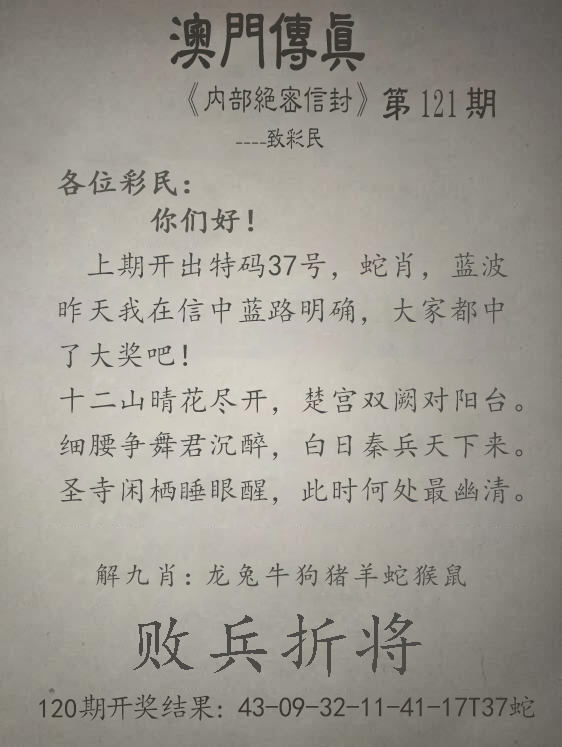 澳門傳眞
《内部絕密信封》第121期
----致彩民
各位彩民：
你们好！
上期开出特码37号，蛇肖，蓝波
昨天我在信中蓝路明确，大家都中
了大奖吧！
十二山晴花尽开，楚宫双阙对阳台。
细腰争舞君沉醉，白日秦兵天下来。
圣寺闲栖睡眼醒，此时何处最幽清。
解九肖：龙兔牛狗猪羊蛇猴鼠
败兵折将
120期开奖结果：43-09-32-11-41-17T37蛇